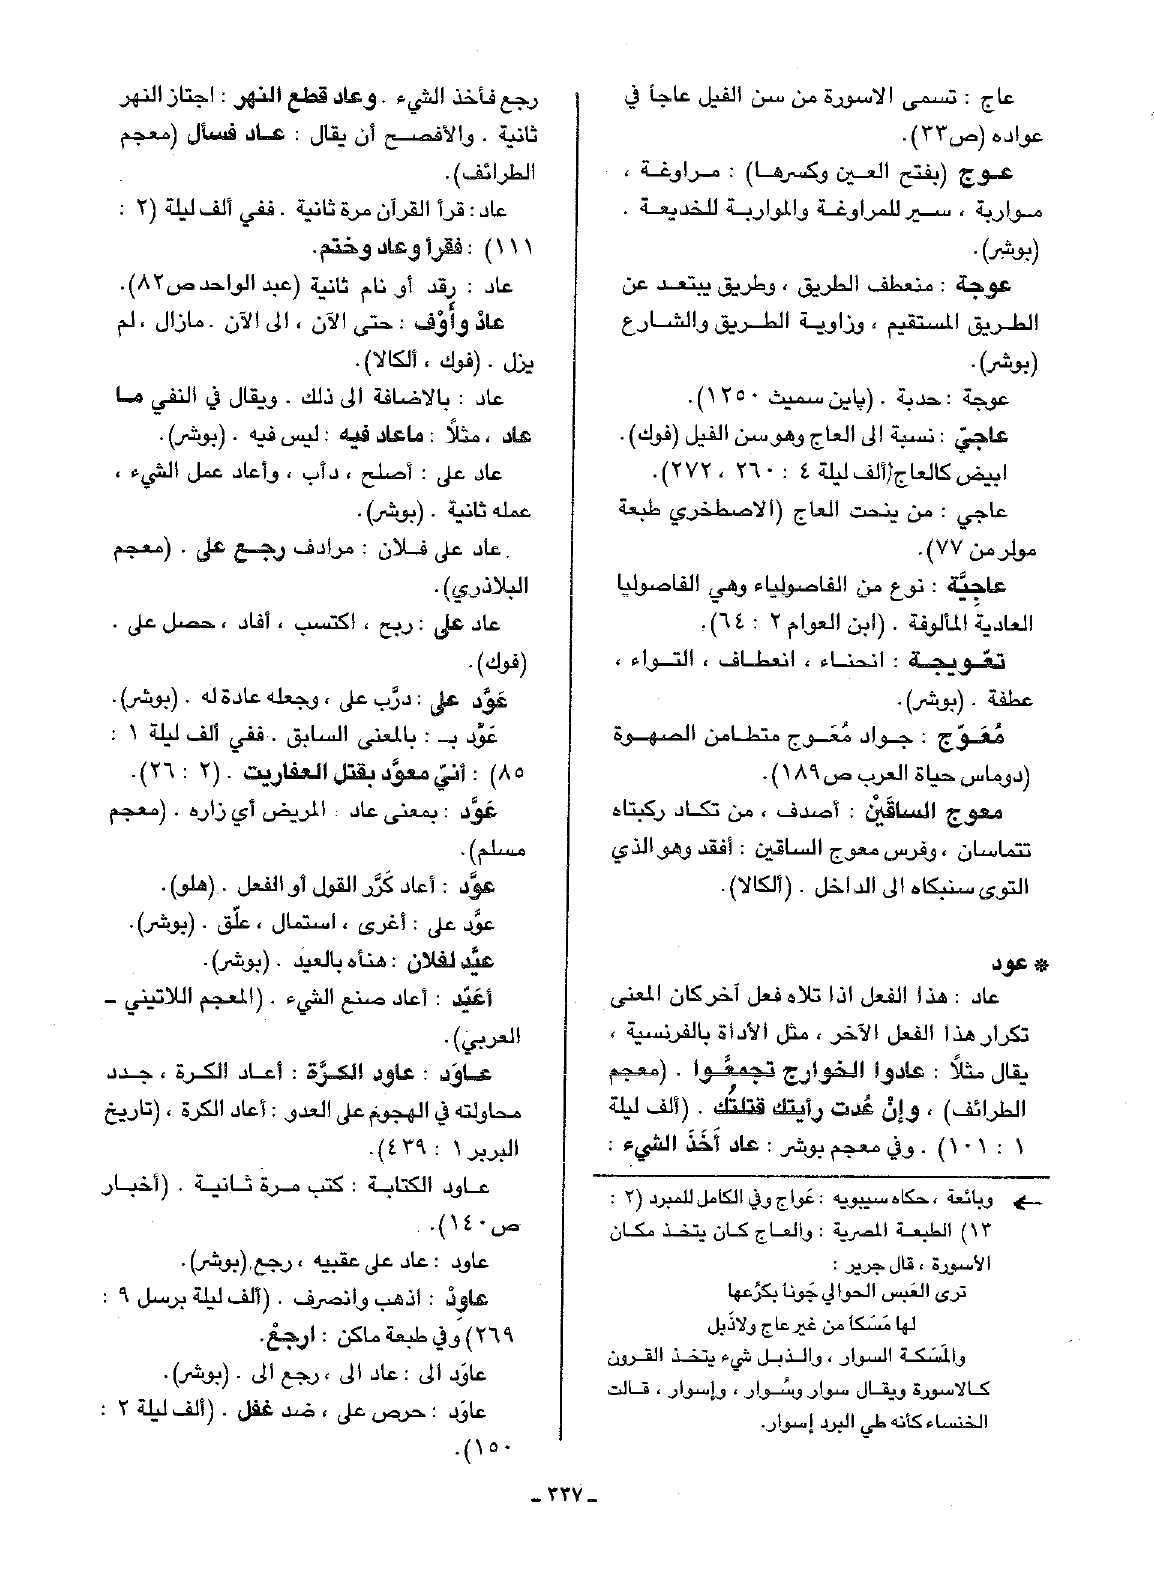 عاج : تسمى الاسورة من سن الفيل عاجاً في
عواده (ص٣٣).
عوج (بفتح العين وكسرها) : مراوغة ،
مواربة ، سير للمراوغة والمواربة للخديعة .
(بوشر).
عوجة : منعطف الطريق ، وطريق يبتعد عن
الطريق المستقيم ، وزاوية الطريق والشارع
(بوشر).
عوجة : حدبة . (پاين سميث ١٢٥٠).
عاجيّ : نسبة الى العاج وهو سن الفيل (فوك).
ابيض كالعاج (ألف ليلة ٤ : ٢٦٠ ، ٢٧٢).
عاجي : من ينحت العاج (الاصطخري طبعة
مولر من ٧٧).
عاجِيَّة : نوع من الفاصولياء وهي الفاصوليا
العادية المألوفة . (ابن العوام ٢ : ٦٤).
تعْويجة : انحناء ، انعطاف ، التواء ،
عطفة . (بوشر).
مُعَوّج : جواد مُعَوج متطامن الصهوة
(دوماس حياة العرب ص١٨٩).
معوج الساقَيْن : أصدف ، من تكاد ركبتاه
تتماسان ، وفرس معوج الساقين : أفقد وهو الذي
التوى سنبكاه الى الداخل . (ألكالا).
* عود
عاد : هذا الفعل اذا تلاه فعل آخر كان المعنى
تكرار هذا الفعل الآخر ، مثل الأداة بالفرنسية ،
يقال مثلاً : عادوا الخوارج تجمعُوا . (معجم
الطرائف) ، وإنْ عُدت رأيتك قتلتُك . (ألف ليلة
١ : ١٠١) . وفي معجم بوشر : عاد أخَذَ الشيء :
← وبائعة ، حكاه سيبويه : عَواج وفي الكامل للمبرد (٢ :
١٣) الطبعة المصرية : والعاج كان يتخذ مكان
الأسورة ، قال جرير :
ترى العَبَس الحوالي جَونا بكرُعها
لها مَسَكاً من غير عاج ولا ذَبل
والمَسَكة السوار ، والذبل شيء يتخذ القرون
كالاسورة ويقال سوار وسُوار ، وإسوار ، قالت
الخنساء كأنه طي البرد إسوار.
رجع فأخذ الشيء . وعاد قطع النهر : اجتاز النهر
ثانية . والأفصح أن يقال : عاد فسأل (معجم
الطرائف).
عاد : قرأ القرآن مرة ثانية . ففي ألف ليلة (٢ :
١١١) : فقرأ وعاد وختم.
عاد : رقد أو نام ثانية (عبد الواحد ص٨٢).
عادْ وأَوْف : حتى الآن ، الى الآن . مازال ، لم
يزل . (فوك ، ألكالا).
عاد : بالاضافة الى ذلك . ويقال في النفي ما
عاد ، مثلاً : ماعاد فيه : ليس فيه . (بوشر).
عاد على : أصلح ، دأب ، وأعاد عمل الشيء ،
عمله ثانية . (بوشر).
عاد على فلان : مرادف رجع على . (معجم
البلاذري).
عاد على : ربح ، اكتسب ، أفاد ، حصل على .
(فوك).
عَوَّد على : درَّب على ، وجعله عادة له . (بوشر).
عَوَّد بـ : بالمعنى السابق . ففي ألف ليلة ١ :
٨٥) : أنيّ معوَّد بقتل العفاريت . (٢ : ٢٦).
عَوَّد : بمعنى عاد المريض أي زاره . (معجم
مسلم).
عوَّد : أعاد كَرَّر القول أو الفعل . (هلو).
عوَّد على : أغرى ، استمال ، علّق . (بوشر).
عيَّد لفلان : هنأه بالعيد . (بوشر).
أعَيّد : أعاد صنع الشيء . (المعجم اللاتيني -
العربي).
عاوَد : عاود الكَرَّة : أعاد الكرة ، جدد
محاولته في الهجوم على العدو : أعاد الكرة ، (تاريخ
البربر ١ : ٤٣٩).
عاود الكتابة : كتب مرة ثانية . (أخبار
ص١٤٠).
عاود : عاد على عقبيه ، رجع (بوشر).
عاودْ : اذهب وانصرف . (ألف ليلة برسل ٩ :
٢٦٩) وفي طبعة ماكن : ارجعْ.
عاوَد الى : عاد الى ، رجع الى . (بوشر).
عاوَد : حرص على ، ضد غفل . (ألف ليلة ٢ :
١٥٠).
- ٣٣٧ -